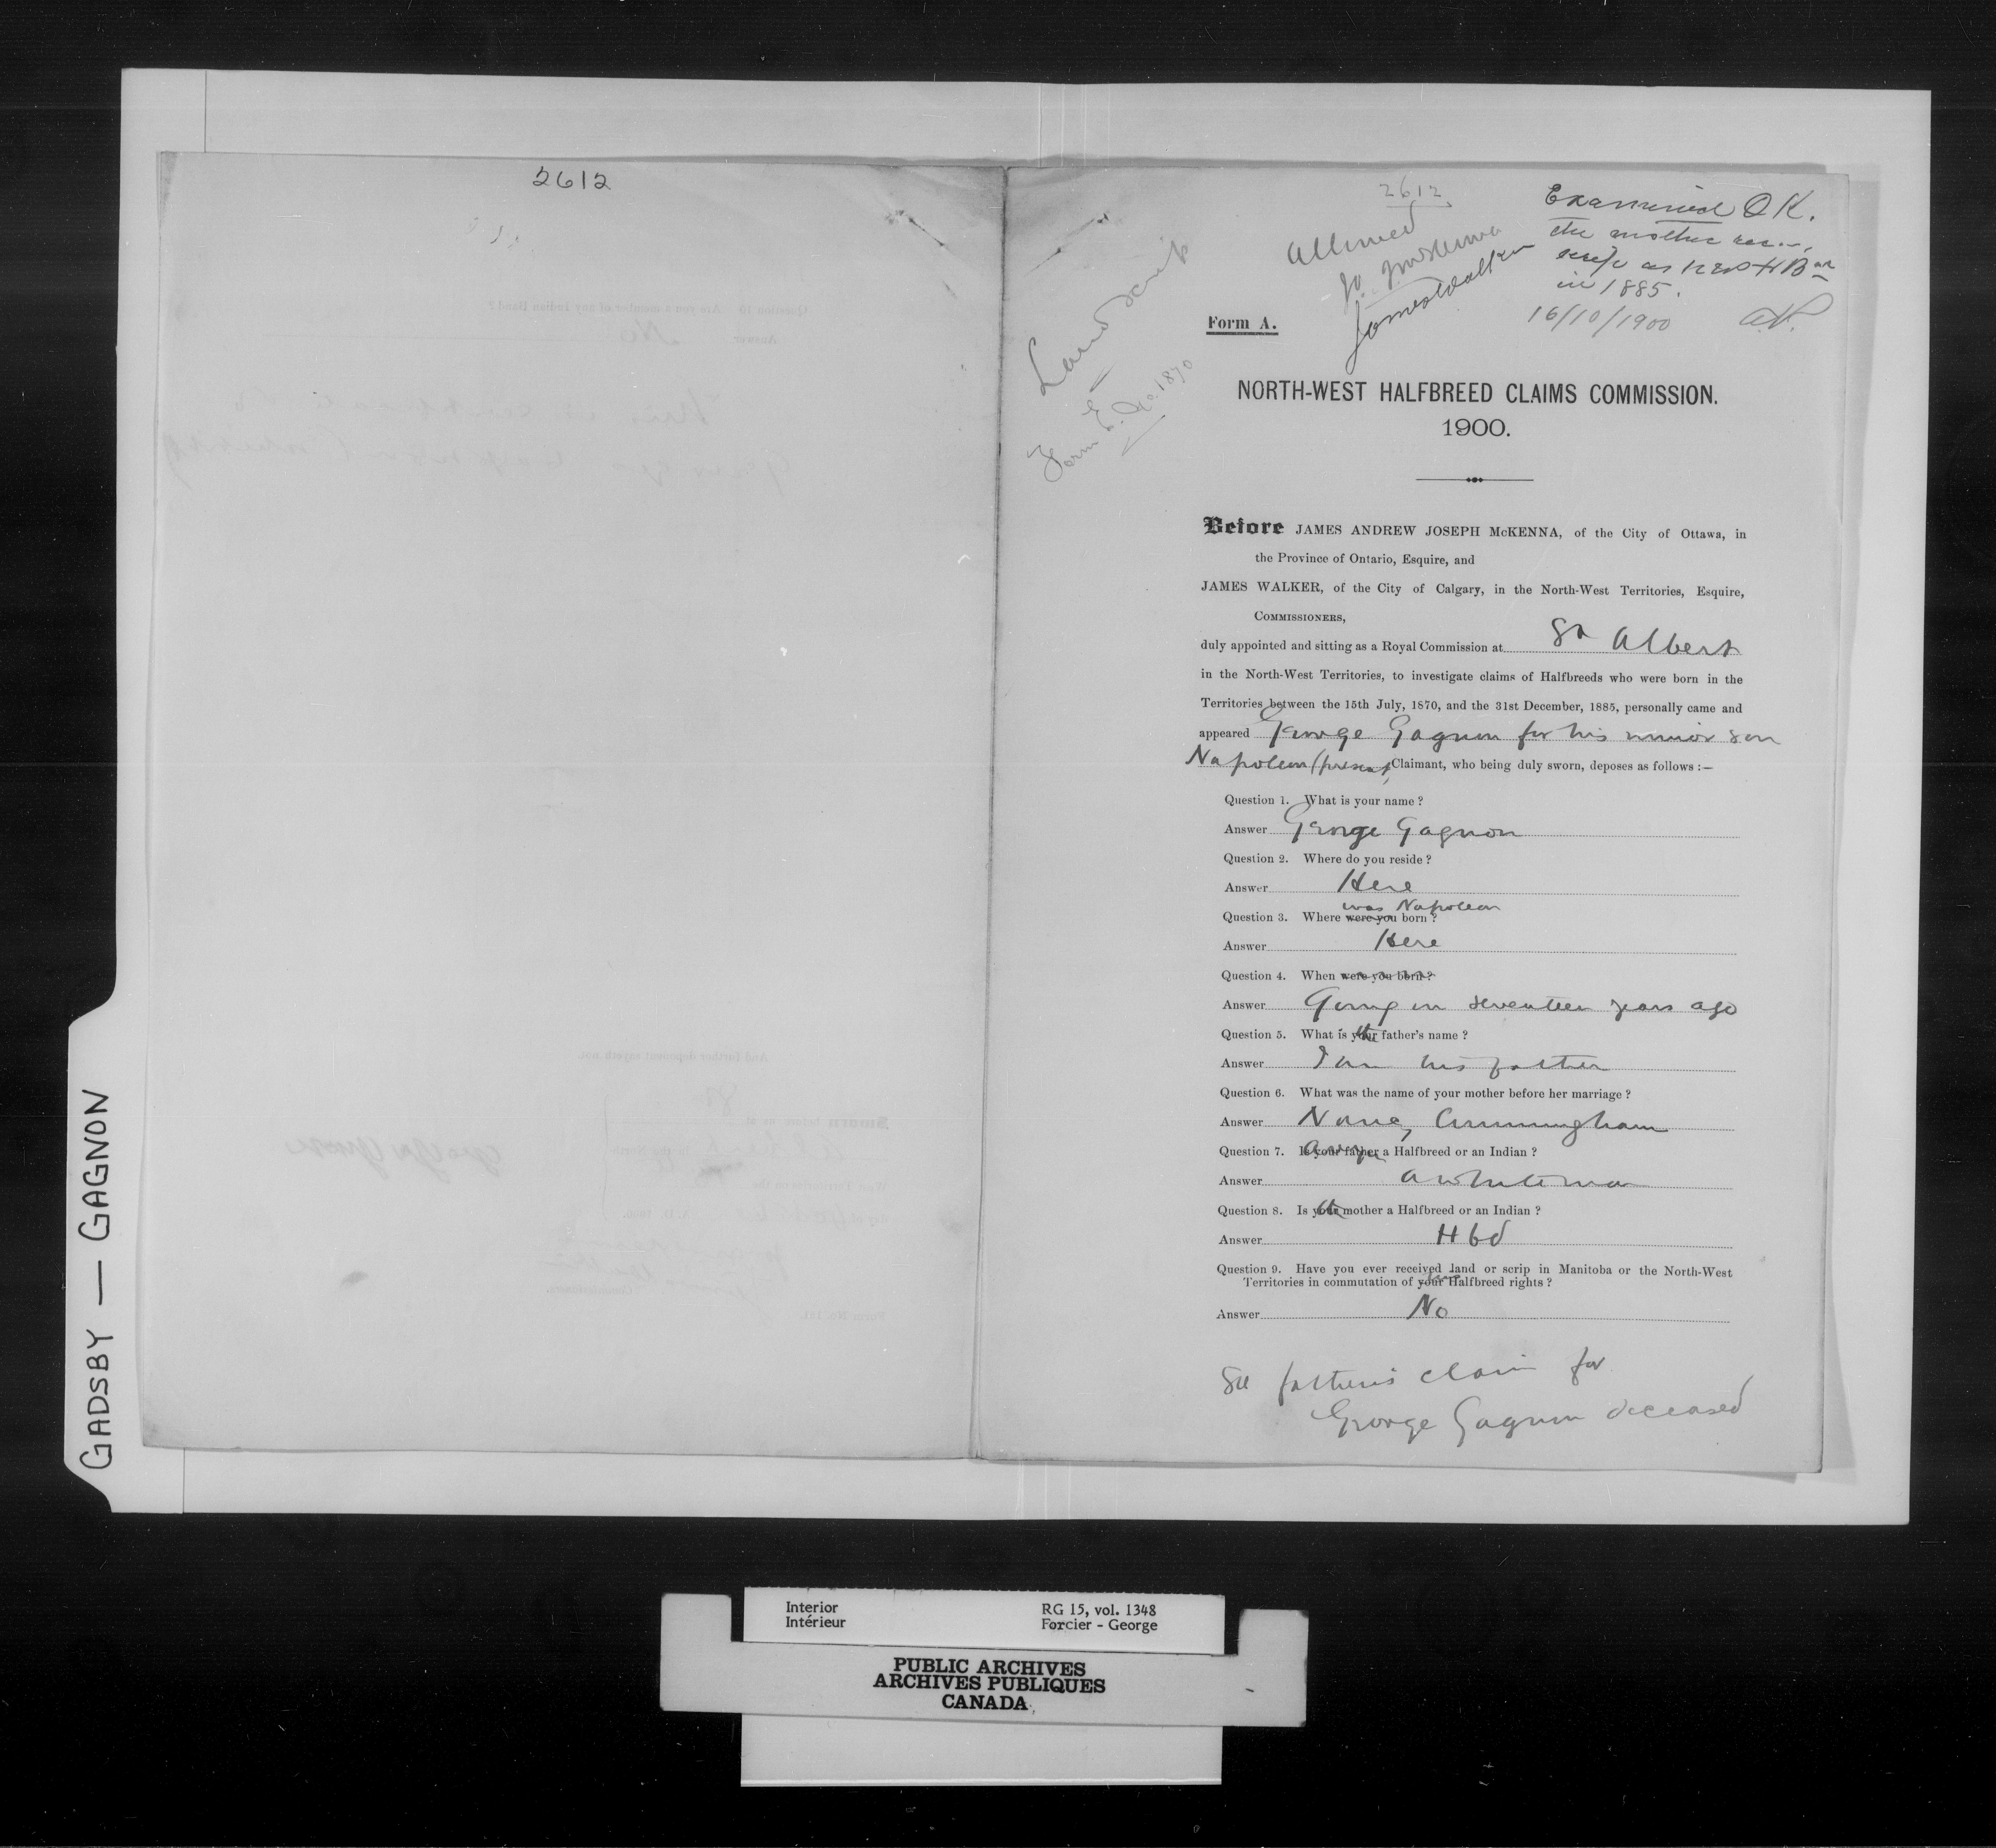 2612
GADSBY — GAGNON
2612
Allowed
James Walker
Examined OK.
the mother rec.
scrip as N W H B
in 1885.
16/10/1900
Land Scrip
Form E. No. 1870
Form A.
NORTH-WEST HALFBREED CLAIMS COMMISSION.
1900.
Before JAMES ANDREW JOSEPH McKENNA, of the City of Ottawa, in
the Province of Ontario, Esquire, and
JAMES WALKER, of the City of Calgary, in the North-West Territories, Esquire,
COMMISSIONERS,
duly appointed and sitting as a Royal Commission at St Albert
in the North-West Territories, to investigate claims of Halfbreeds who were born in the
Territories between the 15th July, 1870, and the 31st December, 1885, personally came and
appeared George Gagnon for his minor son
Napoleon (present) Claimant, who being duly sworn, deposes as follows :—
Question 1. What is your name ?
Answer George Gagnon
Question 2. Where do you reside ?
Answer Here
was Napoleon
Question 3. Where were you born ?
Answer Here
Question 4. When were you born ?
Answer Going on seventeen years ago
Question 5. What is your father's name ?
Answer I am his father
Question 6. What was the name of your mother before her marriage ?
Answer Nancy Cunningham
Question 7. Is your father a Halfbreed or an Indian ?
Answer a whiteman
Question 8. Is your mother a Halfbreed or an Indian ?
Answer Hbd
Question 9. Have you ever received land or scrip in Manitoba or the North-West
Territories in commutation of your Halfbreed rights ?
Answer No
See father's claim for
George Gagnon deceased
Interior
Intérieur
RG 15, vol. 1348
Forcier - George
PUBLIC ARCHIVES
ARCHIVES PUBLIQUES
CANADA